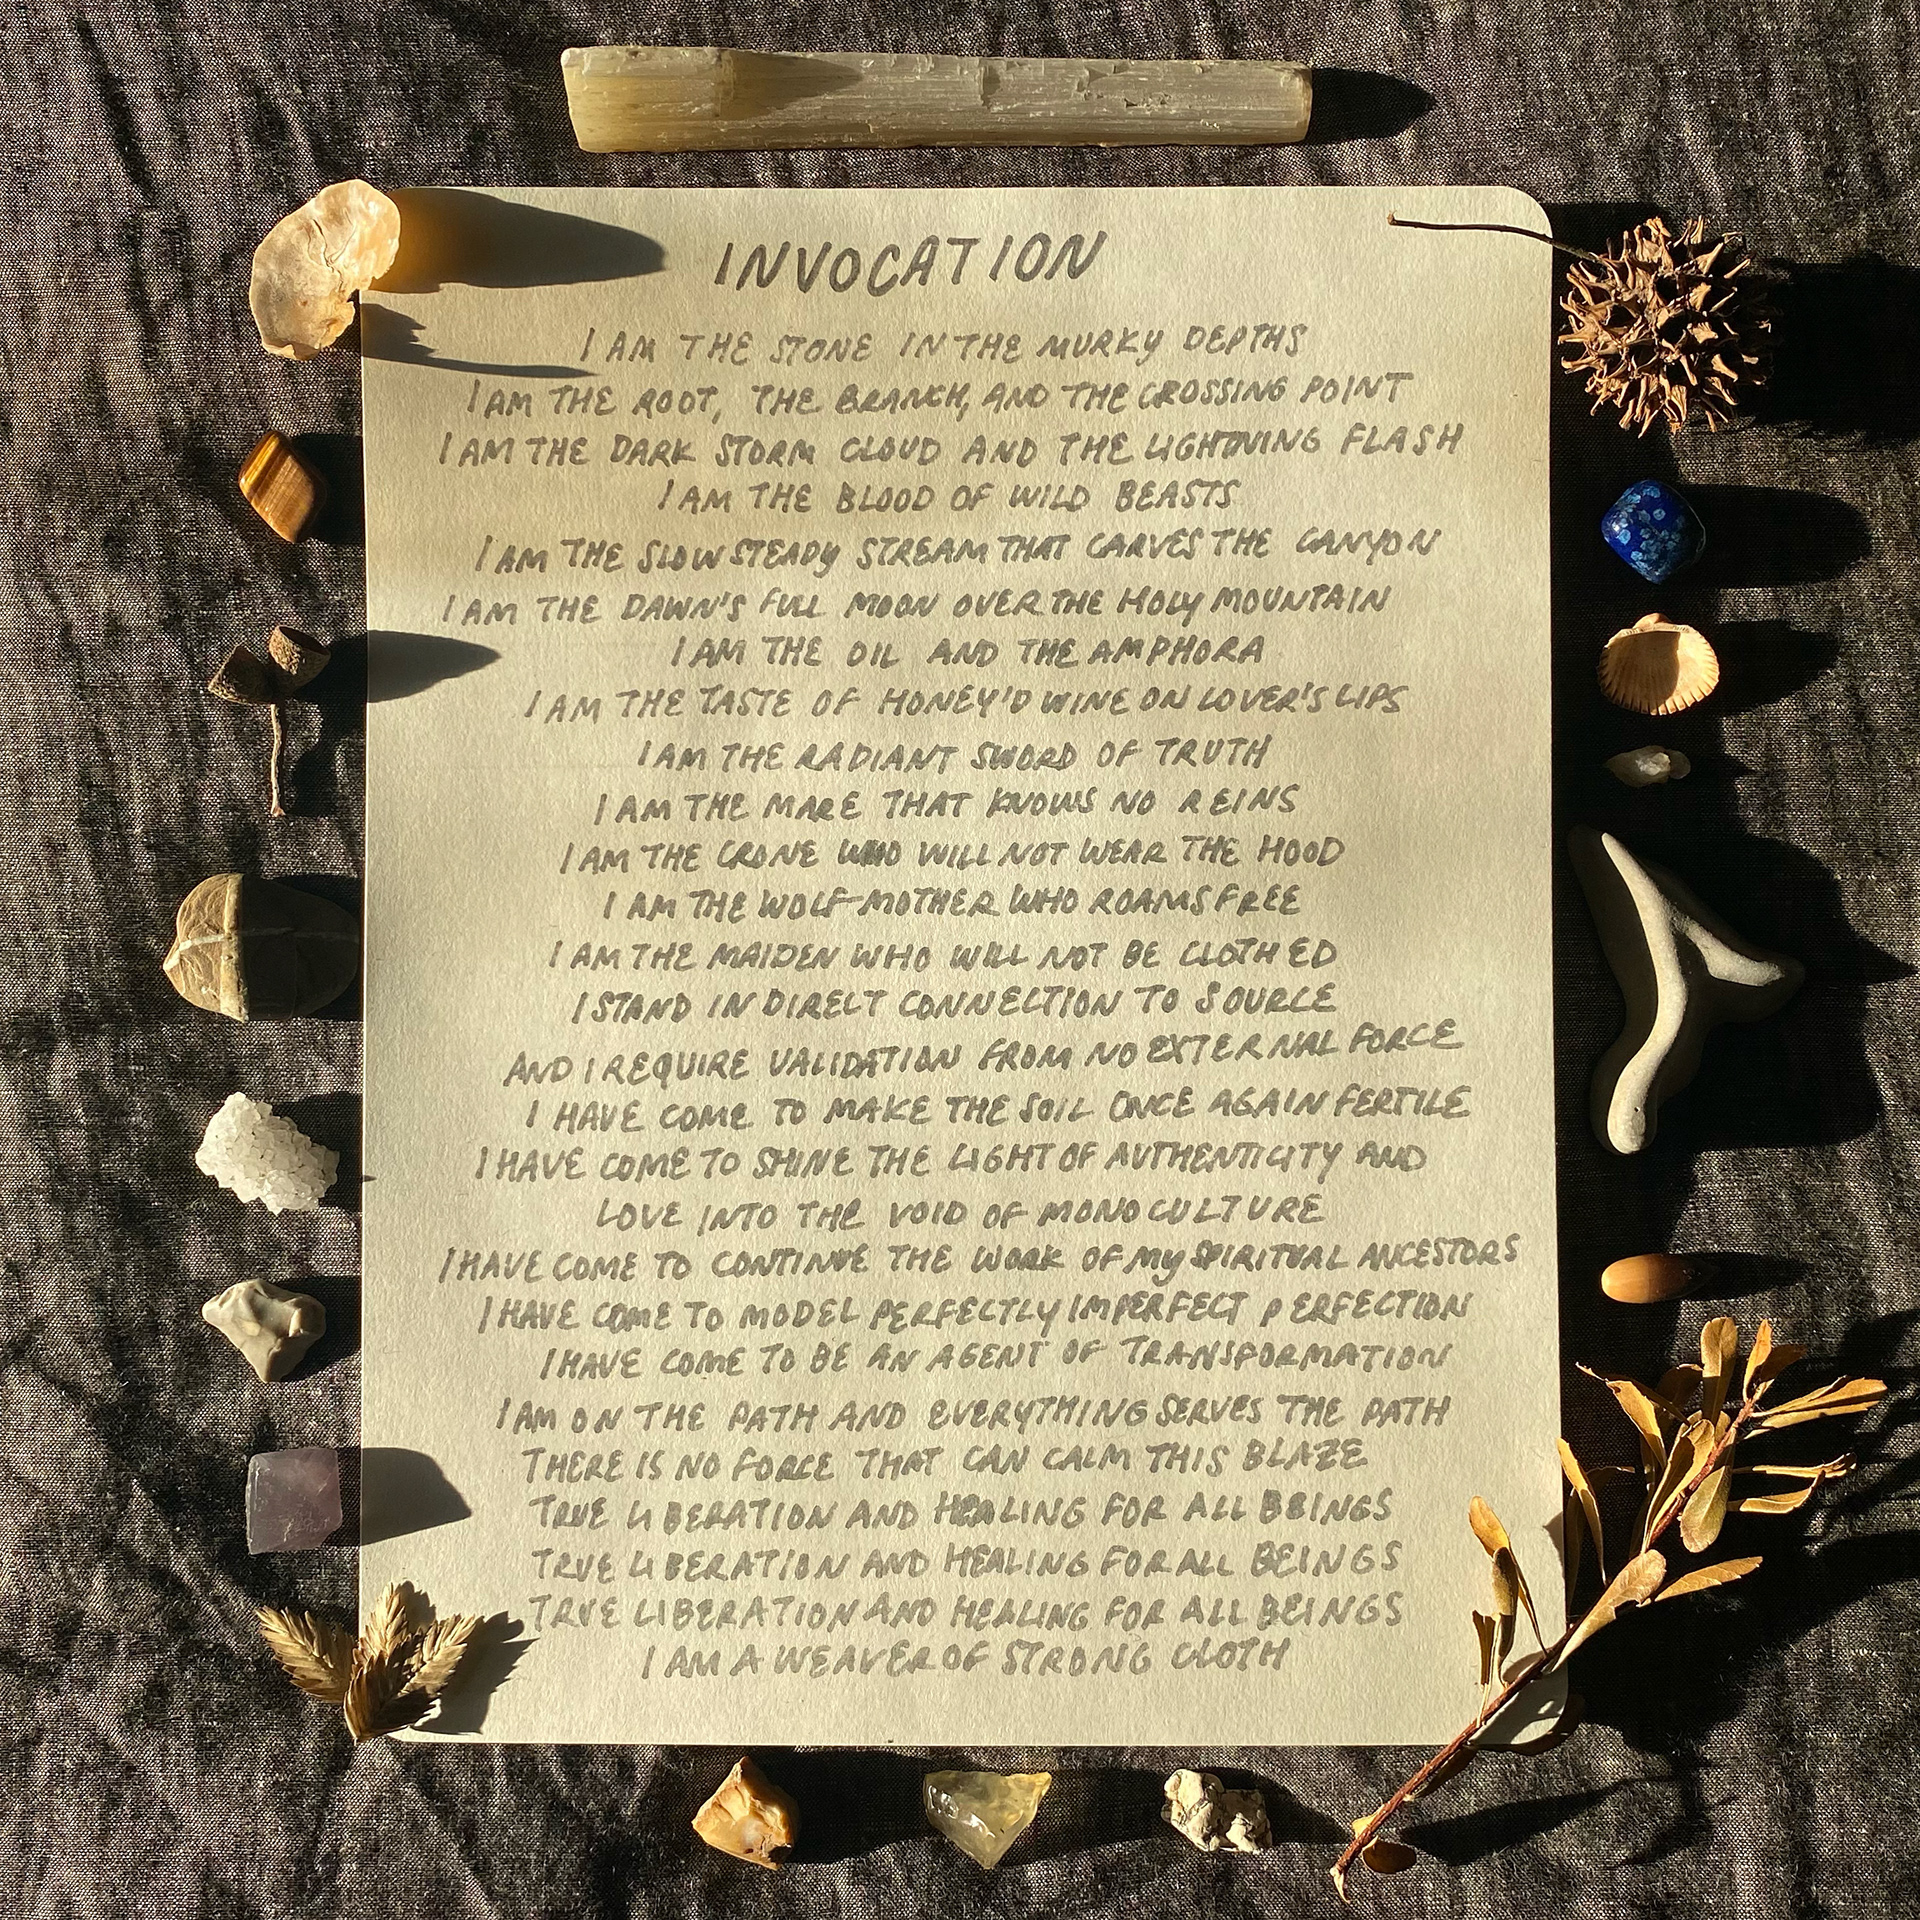 INVOCATION
I AM THE STONE IN THE MURKY DEPTHS
I AM THE ROOT, THE BRANCH, AND THE CROSSING POINT
I AM THE DARK STORM CLOUD AND THE LIGHTNING FLASH
I AM THE BLOOD OF WILD BEASTS
I AM THE SLOW STEADY STREAM THAT CARVES THE CANYON
I AM THE DAWN'S FULL MOON OVER THE HOLY MOUNTAIN
I AM THE OIL AND THE AMPHORA
I AM THE TASTE OF HONEY'D WINE ON LOVER'S LIPS
I AM THE RADIANT SWORD OF TRUTH
I AM THE MARE THAT KNOWS NO REINS
I AM THE CRONE WHO WILL NOT WEAR THE HOOD
I AM THE WOLF-MOTHER WHO ROAMS FREE
I AM THE MAIDEN WHO WILL NOT BE CLOTHED
I STAND IN DIRECT CONNECTION TO SOURCE
AND I REQUIRE VALIDATION FROM NO EXTERNAL FORCE
I HAVE COME TO MAKE THE SOIL ONCE AGAIN FERTILE
I HAVE COME TO SHINE THE LIGHT OF AUTHENTICITY AND
LOVE INTO THE VOID OF MONOCULTURE
I HAVE COME TO CONTINUE THE WORK OF MY SPIRITUAL ANCESTORS
I HAVE COME TO MODEL PERFECTLY IMPERFECT PERFECTION
I HAVE COME TO BE AN AGENT OF TRANSFORMATION
I AM ON THE PATH AND EVERYTHING SERVES THE PATH
THERE IS NO FORCE THAT CAN CALM THIS BLAZE
TRUE LIBERATION AND HEALING FOR ALL BEINGS
TRUE LIBERATION AND HEALING FOR ALL BEINGS
TRUE LIBERATION AND HEALING FOR ALL BEINGS
I AM A WEAVER OF STRONG CLOTH